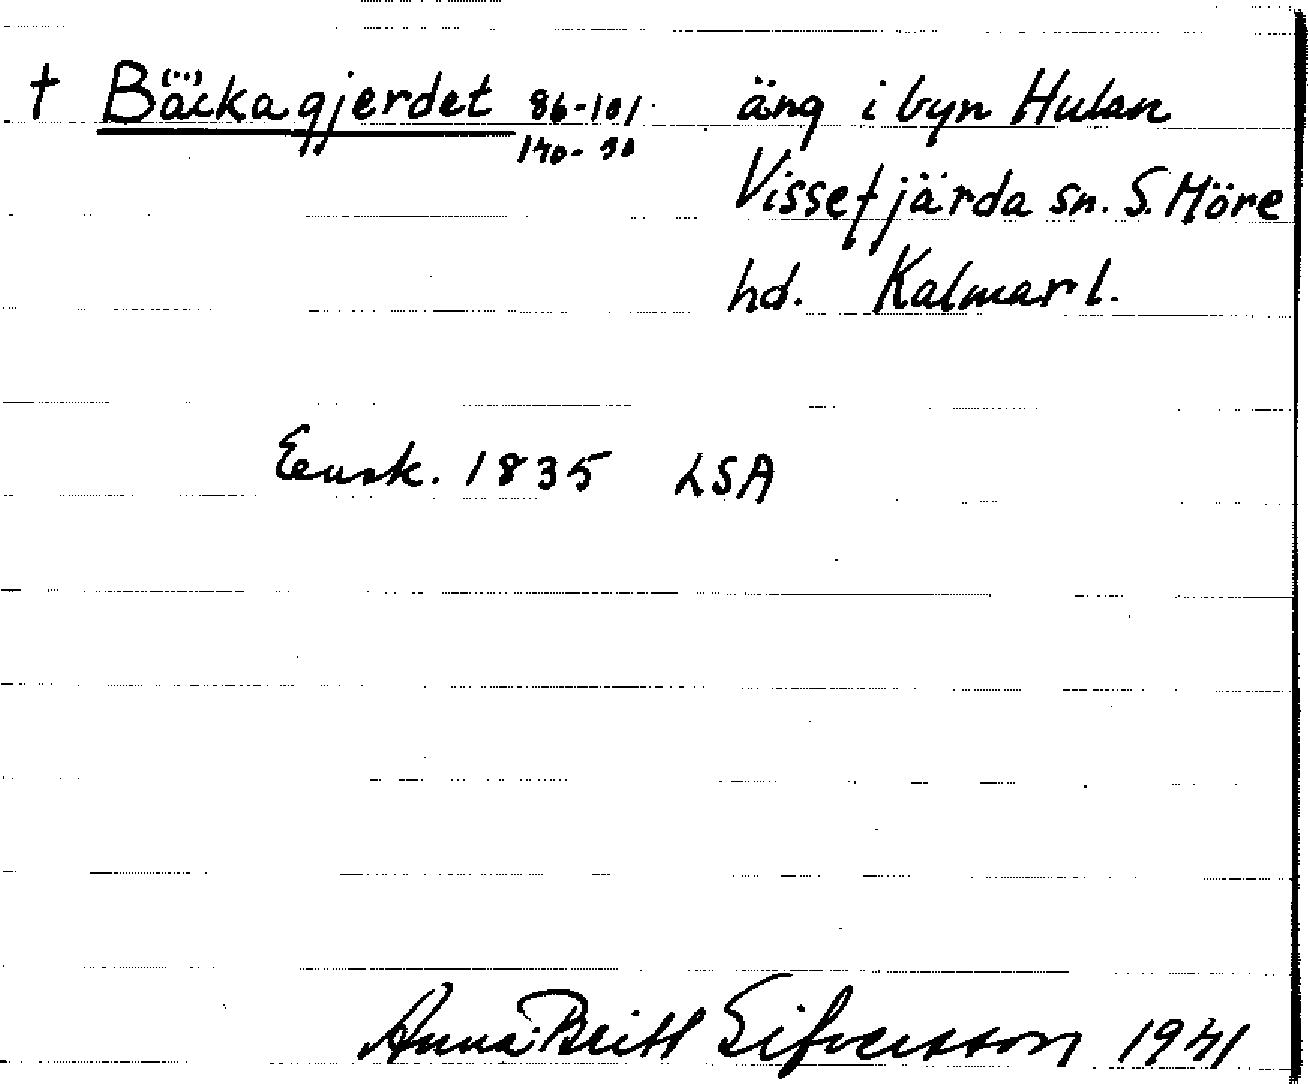 † Bäckagjerdet 86-101 äng i byn Hulan
140-50 Vissefjärda sn. S. Möre
hd. Kalmar l.
Ensk. 1835 LSA
Anna-Britt Sifversson 1941